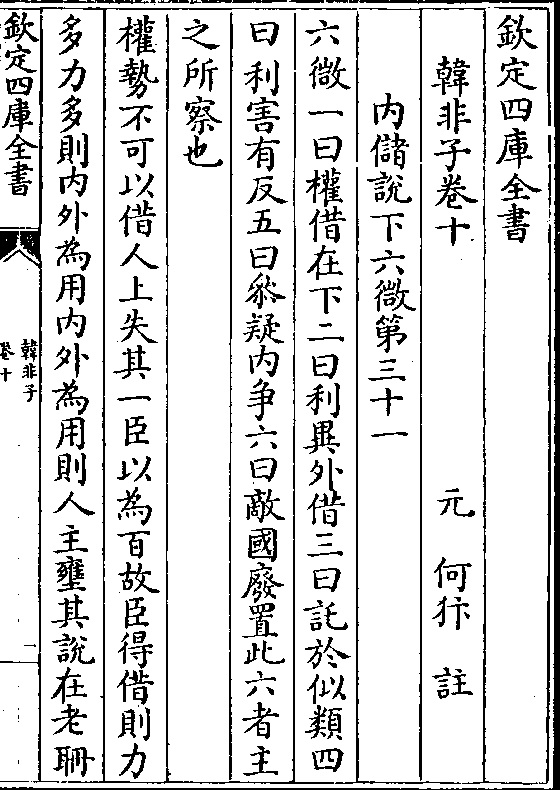 欽定四庫全書
韓非子卷十
元 何犿 註
内儲說下六微第三十一
六微一曰權借在下二曰利異外借三曰託於似類四
曰利害有反五曰叅疑内争六曰敵國廢置此六者主
之所察也
權勢不可以借人上失其一臣以為百故臣得借則力
多力多則内外為用内外為用則人主壅其說在老聃
欽定四庫全書
韓非子
卷十
一